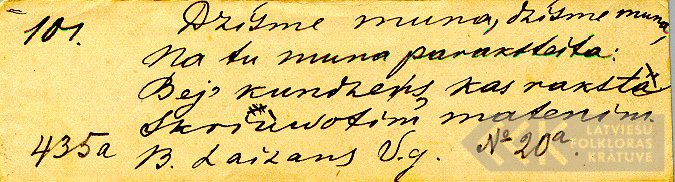 101. Dzīsme muna, dzīsme muna,
Na tu muna paraksteita:
Bej kundzeņš kas rakstè
Skriuwotim matenim.
435a B. Laizans V.g. № 20a.
LATVIEŠU
FOLKLORAS
KRĀTUVE